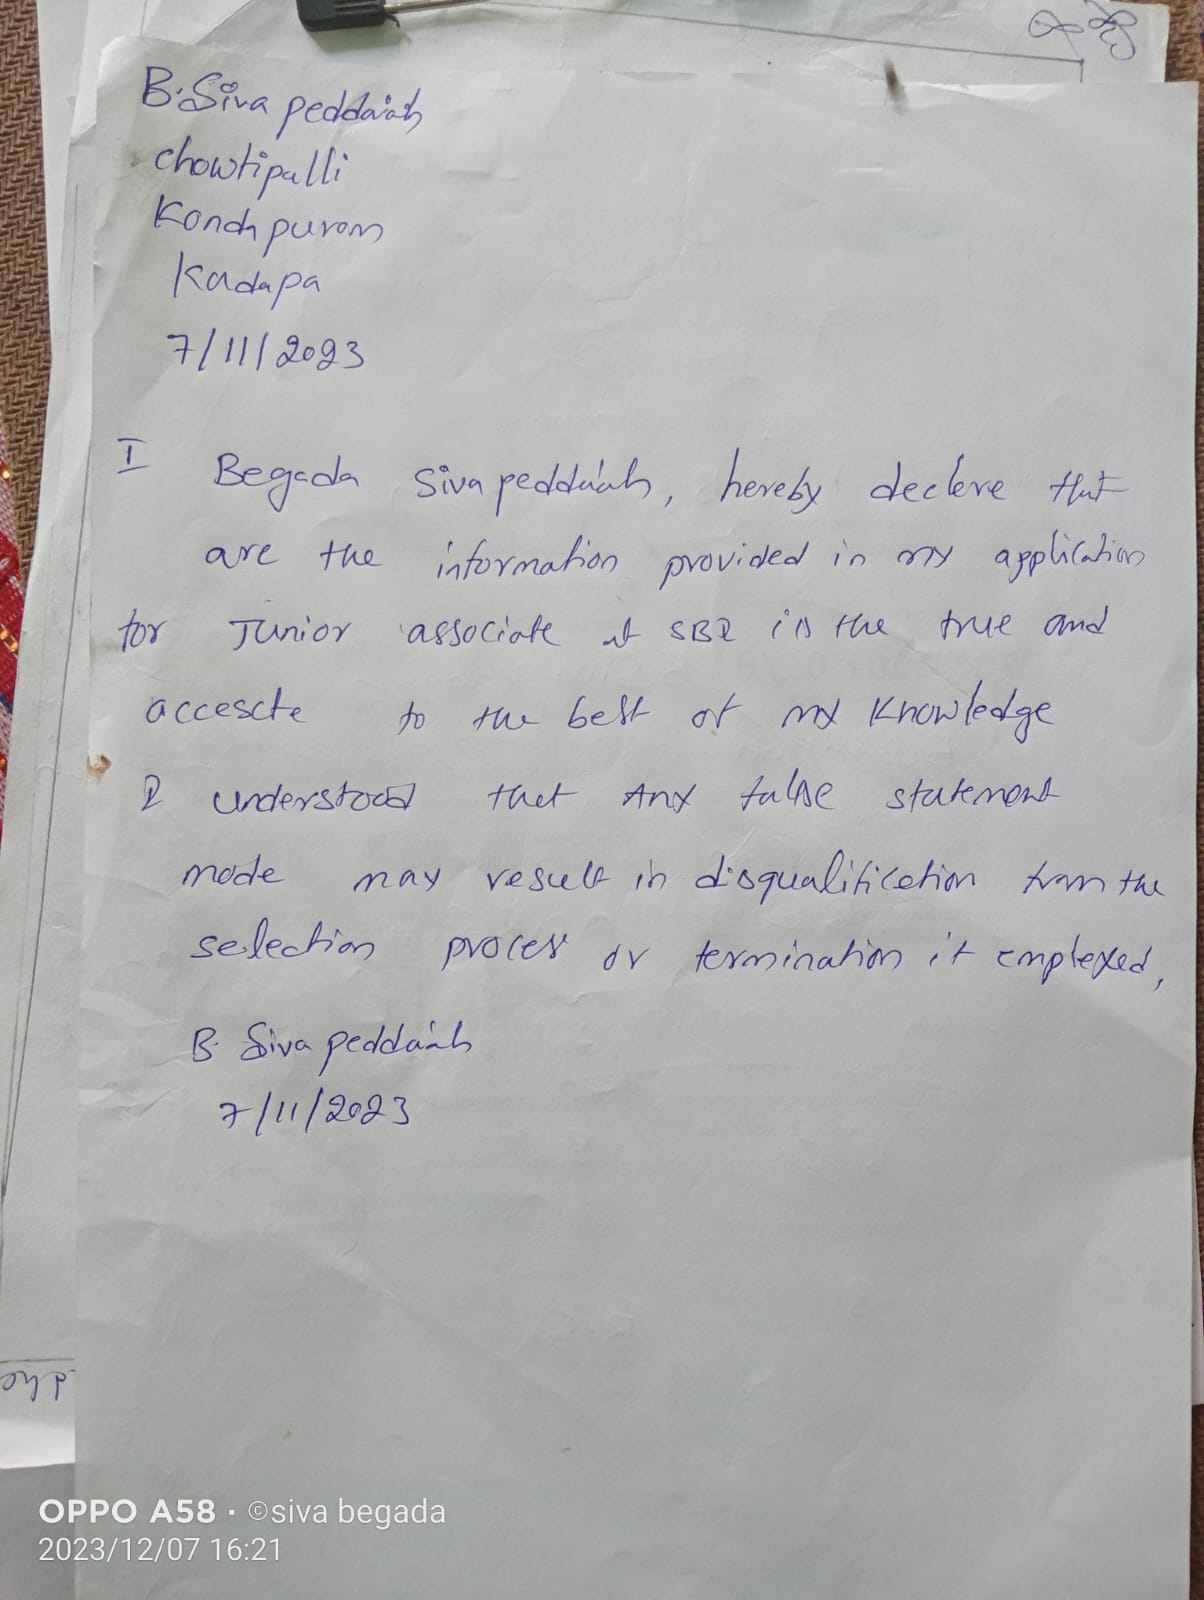 B. Siva peddaiah
chowtipalli
Kondapuram
Kadapa
7/11/2023
I Begada Siva peddaiah, hereby declere that
are the information provided in my application
for Junior associate at SBI is the true and
accescte to the best of my Knowledge
I understood that Any false statement
mode may result in disqualification from the
selection proces or termination if emplexed,
B. Siva peddaiah
7/11/2023
OPPO A58 · ©siva begada
2023/12/07 16:21